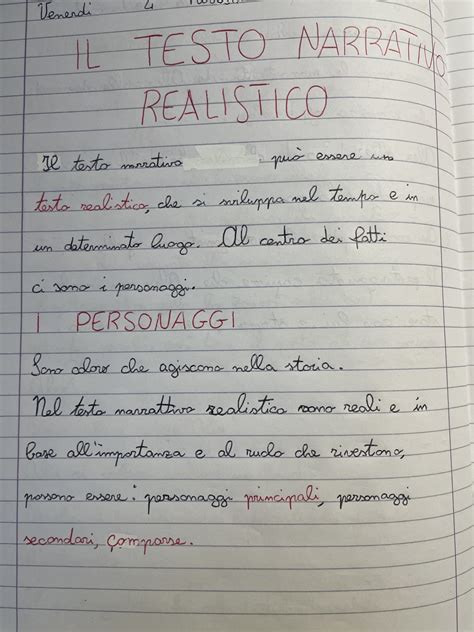 Venerdì 4
IL TESTO NARRATIVO
REALISTICO
Il testo narrativo può essere un
testo realistico, che si sviluppa nel tempo e in
un determinato luogo. Al centro dei fatti
ci sono i personaggi.
I PERSONAGGI
Sono coloro che agiscono nella storia.
Nel testo narrattivo realistico sono reali e in
base all'importanza e al ruolo che rivestono,
possono essere: personaggi principali, personaggi
secondari, comparse.